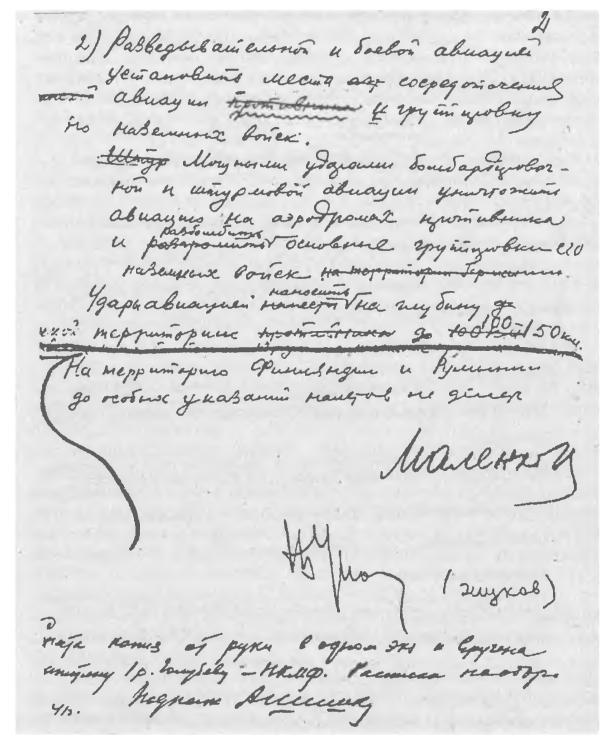 2
2) Разведывательной и боевой авиацией
установить места сосредоточения
авиации противника и группировку
его наземных войск.
Штур Мощными ударами бомбардировоч-
ной и штурмовой авиации уничтожить
авиацию на аэродромах противника
разбомбить
и разгромить основные группировки его
наземных войск на территории Германии.
наносить
Удары авиацией нанести на глубину
территории противника до 100-150 км.
На территорию Финляндии и Румынии
до особых указаний налетов не делать
Маленков
(Жуков)
от руки в одном экз и вручена
1 р. Голубеву – НКМФ. Расписка на обор.